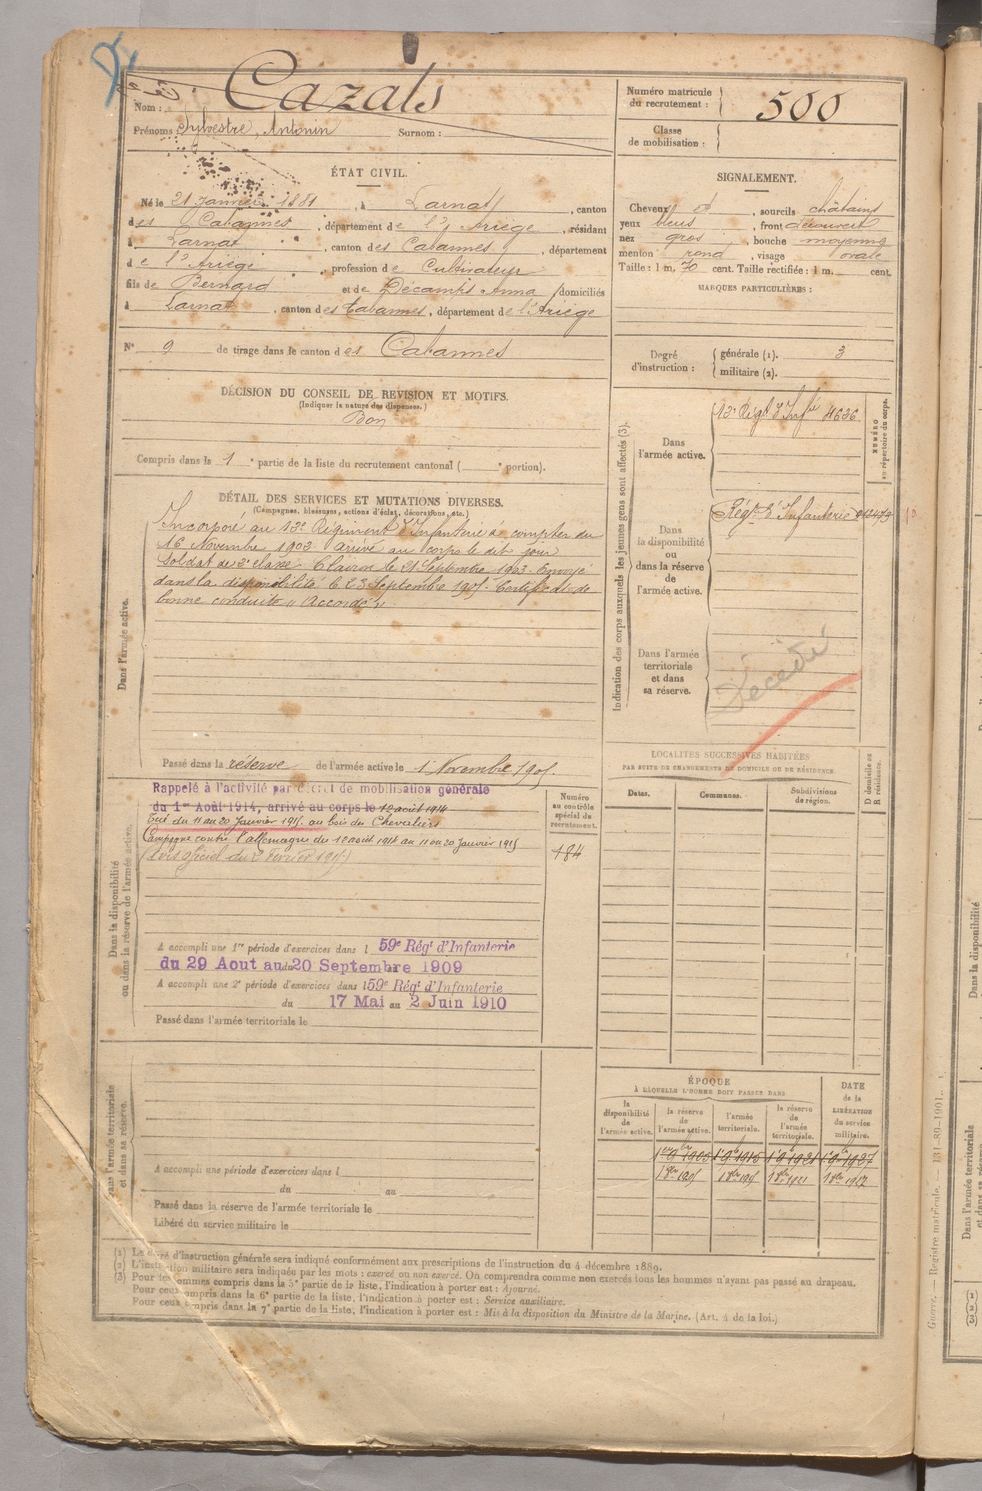 Nom : Cazals
Prénoms : Sylvestre, Antonin Surnom :
Numéro matricule du recrutement : 500
Classe de mobilisation :
ÉTAT CIVIL.
Né le 21 Janvier 1881, à Larnat, canton
des Cabannes, département de l'Ariège, résidant
à Larnat, canton des Cabannes, département
de l'Ariège, profession de Cultivateur
fils de Bernard et de Décamps Anna domiciliés
à Larnat, canton des Cabannes, département de l'Ariège
N° 9 de tirage dans le canton des Cabannes
SIGNALEMENT.
Cheveux, sourcils châtains
yeux bleus, front découvert
nez gros, bouche moyenne
menton rond, visage ovale
Taille : 1 m. 70 cent. Taille rectifiée : 1 m. cent.
MARQUES PARTICULIÈRES :
Degré d'instruction : générale (1). 3
militaire (2).
DÉCISION DU CONSEIL DE REVISION ET MOTIFS.
(Indiquer la nature des dispenses.)
Bon
Compris dans la 1e partie de la liste du recrutement cantonal ( e portion).
DÉTAIL DES SERVICES ET MUTATIONS DIVERSES.
(Campagnes, blessures, actions d'éclat, décorations, etc.)
Dans l'armée active.
Incorporé au 13e Régiment d'Infanterie à compter du
16 Novembre 1903 arrivé au corps le dit jour
Soldat de 2e classe. Clairon le 21 Septembre 1903. Envoyé
dans la disponibilité le 23 Septembre 1905. Certificat de
bonne conduite "Accordé"
Passé dans la réserve de l'armée active le 1 Novembre 1905.
Indication des corps auxquels les jeunes gens sont affectés (3).
NUMÉRO au répertoire du corps.
Dans l'armée active.
13e Régt d'Infie 4636
Dans la disponibilité ou dans la réserve de l'armée active.
Régt d'Infanterie
Dans l'armée territoriale et dans sa réserve.
Décédé
Dans la disponibilité ou dans la réserve de l'armée active.
Rappelé à l'activité par décret de mobilisation générale
du 1er Août 1914, arrivé au corps le 12 août 1914
Tué du 11 au 20 Janvier 1915. au bois des Chevaliers
Campagne contre l'allemagne du 12 août 1914 au 11 ou 20 Janvier 1915
(avis officiel du 2 Février 1915)
Numéro au contrôle spécial du recrutement.
184
A accompli une 1re période d'exercices dans l 59e Régt d'Infanterie
du 29 Aout au 20 Septembre 1909
A accompli une 2e période d'exercices dans l 59e Régt d'Infanterie
du 17 Mai au 2 Juin 1910
Passé dans l'armée territoriale le
LOCALITÉS SUCCESSIVES HABITÉES
PAR SUITE DE CHANGEMENTS DE DOMICILE OU DE RÉSIDENCE.
Dates. Communes. Subdivisions de région. D domicile ou R résidence.
Dans l'armée territoriale et dans sa réserve.
A accompli une période d'exercices dans l
du au
Passé dans la réserve de l'armée territoriale le
Libéré du service militaire le
ÉPOQUE
À LAQUELLE L'HOMME DOIT PASSER DANS
la disponibilité de l'armée active. la réserve de l'armée active. l'armée territoriale. la réserve de l'armée territoriale.
DATE de la LIBÉRATION du service militaire.
(1) Le degré d'instruction générale sera indiqué conformément aux prescriptions de l'instruction du 4 décembre 1889.
(2) L'instruction militaire sera indiquée par les mots : exercé ou non exercé. On comprendra comme non exercés tous les hommes n'ayant pas passé au drapeau.
(3) Pour les hommes compris dans la 5e partie de la liste, l'indication à porter est : Ajourné.
Pour ceux compris dans la 6e partie de la liste, l'indication à porter est : Service auxiliaire.
Pour ceux compris dans la 7e partie de la liste, l'indication à porter est : Mis à la disposition du Ministre de la Marine. (Art. 4 de la loi.)
Guerre. — Registre matricule. — 131-89-1901.
Dans la disponibilité
Dans l'armée territoriale